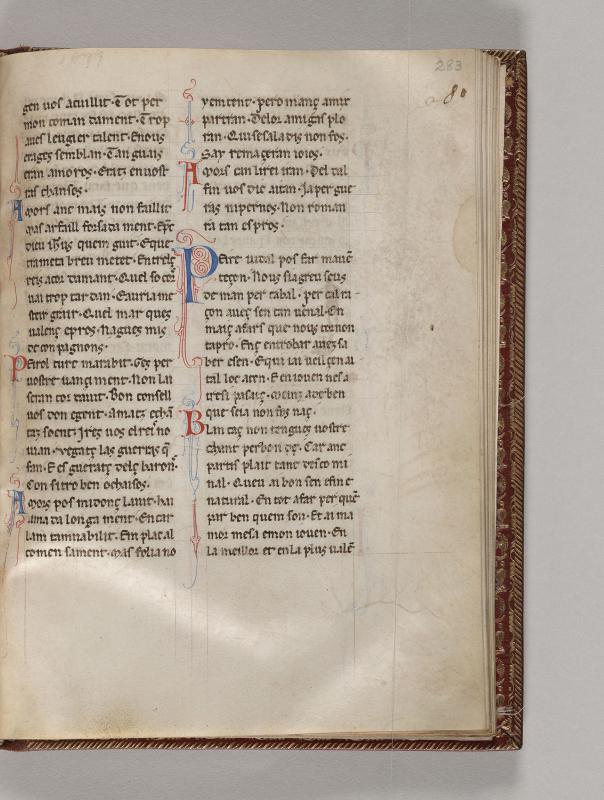 283
80
gen uos acuillit · E ot per
mon coman dament · E trop
aues leugier talent · Enous
eratges semblan · Tan guais
eran amoros · Entz en uost
ras chansos ·
Amors anc mais non faillit
mas ar faill forsa da ment · Epc
dieu ihus quem guit · Eque
trameta breu metet · Entrelç
reis acor damant · Quel so cor
uai trop tar dan · Eauria me
stier gran · Quel mar ques
ualens epros · Nagues mis
de con pagnons ·
Peirol turc marabit · Ges per
uostre uançament · Non lai
seran tor dauit · Bon consell
uos don egent · amatz echã
taz soent · Irez uos elrei no
uan · Vegatz las guerras q̃
fan · E es guaratz dels baron
Con sitro ben ochaisos ·
Amors pos midonç lauit · hai
aima da longa ment · Encar
lam tamnabilit · Em plac al
comen sament · Mas folia no
y enteut · pero manç amic
partran · Delor amigas plo
ran · Qui se saladis non fos ·
Say remaçeran ioios ·
Amors can lirei iran · Del tal
fin uos die aitan · Ia per gue
ras nipernos · Non roman
ra tan espros ·
Peire uidal pos far mauẽ
tençon · Nous sia greu seus
deman per cabal · per cal ra
çon aueç sen tan uenal · En
maiç afars que nous tornon
apro · Enç entrobar aueç sa
ber esen · E qui iai ueilgen ai
tal loc aten · E en iouen nes a
tresi pasatç · Meinz ade ben
que seia non fos naç ·
Blan caç non tengues uostre
chant per bon ge · Car anc
partis plait tant desco mi
nal · Queu ai bon sen efin e
natural · En tot afar per quẽ
par ben quem son · Et ai ma
mor mesa emon iouen · En
la meillor et en la plus ualẽ